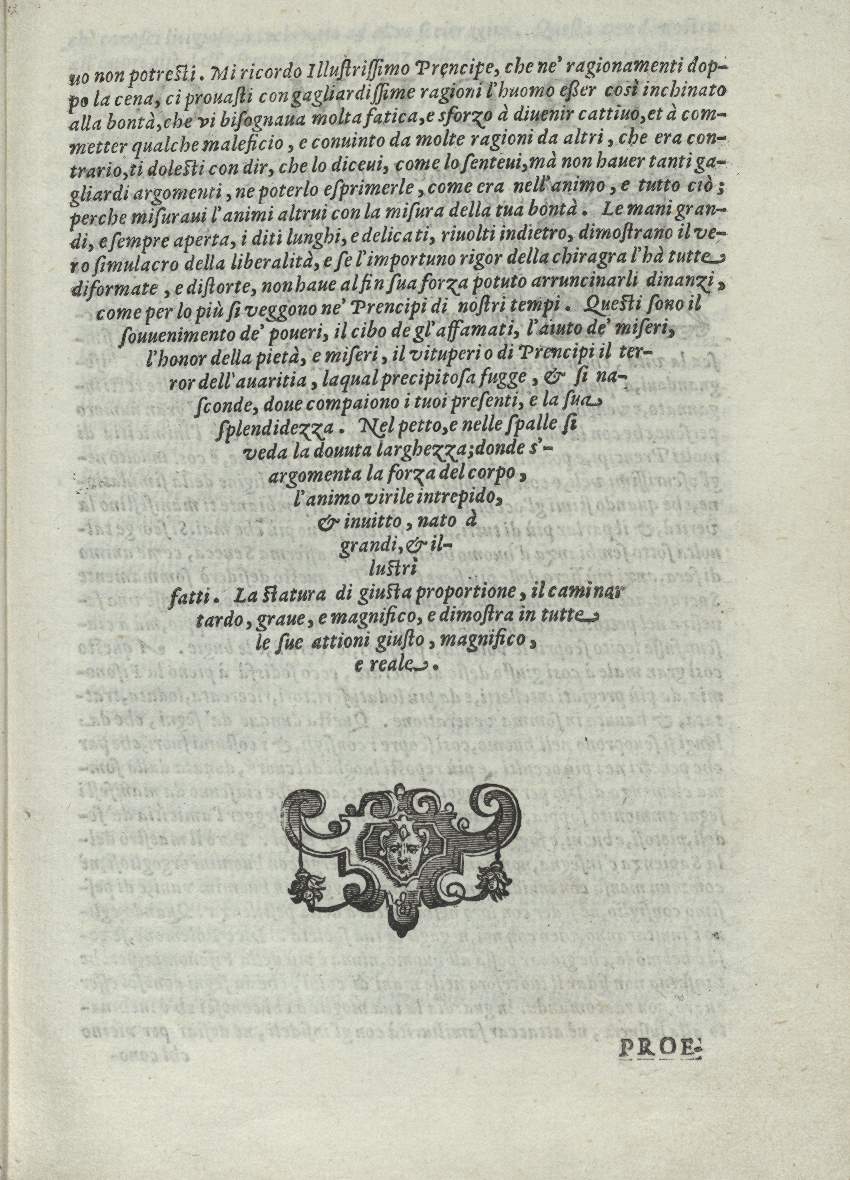 uo non potreſti. Mi ricordo Illuſtriſſimo Prencipe, che ne' ragionamenti dop-
po la cena, ci prouaſti con gagliardiſſime ragioni l'huomo eſſer così inchinato
alla bontà, che vi biſognaua molta fatica, e sforzo à diuenir cattiuo, et à com-
metter qualche maleficio, e conuinto da molte ragioni da altri, che era con-
trario, ti doleſti con dir, che lo diceui, come lo ſenteui, mà non hauer tanti ga-
gliardi argomenti, ne poterlo eſprimerle, come era nell'animo, e tutto ciò;
perche miſuraui l'animi altrui con la miſura della tua bontà. Le mani gran-
di, e ſempre aperta, i diti lunghi, e delicati, riuolti indietro, dimoſtrano il ve-
ro ſimulacro della liberalità, e ſe l'importuno rigor della chiragra l'hà tutte
diformate, e diſtorte, non haue al fin ſua forza potuto arruncinarli dinanzi,
come per lo più ſi veggono ne' Prencipi di noſtri tempi. Queſti ſono il
ſouuenimento de' poueri, il cibo de gl'affamati, l'aiuto de' miſeri,
l'honor della pietà, e miſeri, il vituperio di Prencipi il ter-
ror dell'auaritia, laqual precipitoſa fugge, & ſi na-
ſconde, doue compaiono i tuoi preſenti, e la ſua
ſplendidezza. Nel petto, e nelle ſpalle ſi
veda la douuta larghezza; donde s'-
argomenta la forza del corpo,
l'animo virile intrepido,
& inuitto, nato à
grandi, & il-
luſtri
fatti. La ſtatura di giuſta proportione, il caminar
tardo, graue, e magnifico, e dimoſtra in tutte
le ſue attioni giuſto, magnifico,
e reale.
PROE-